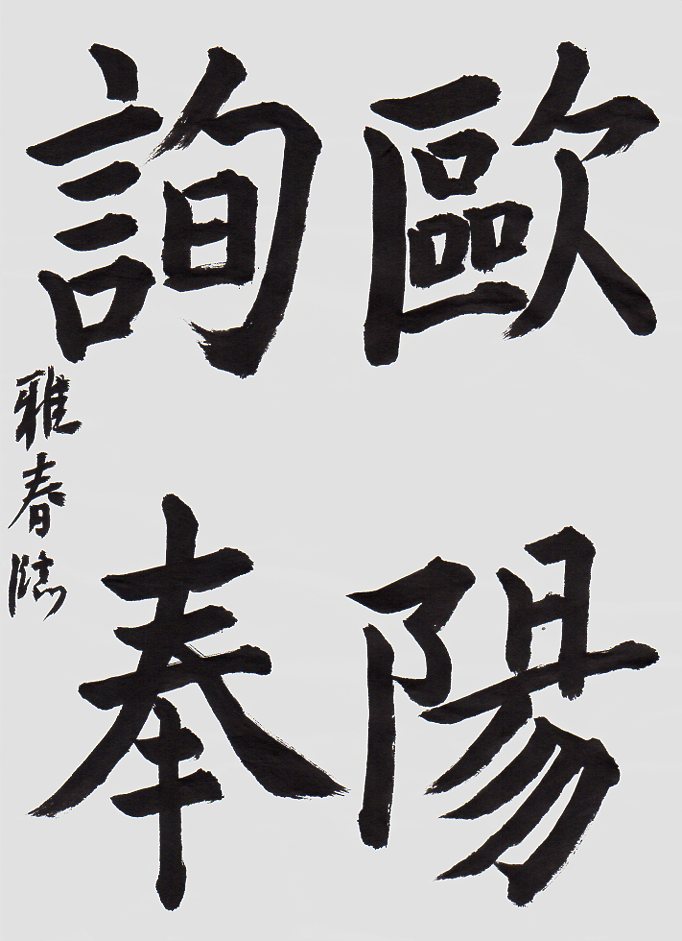 歐陽
詢奉
雅春臨